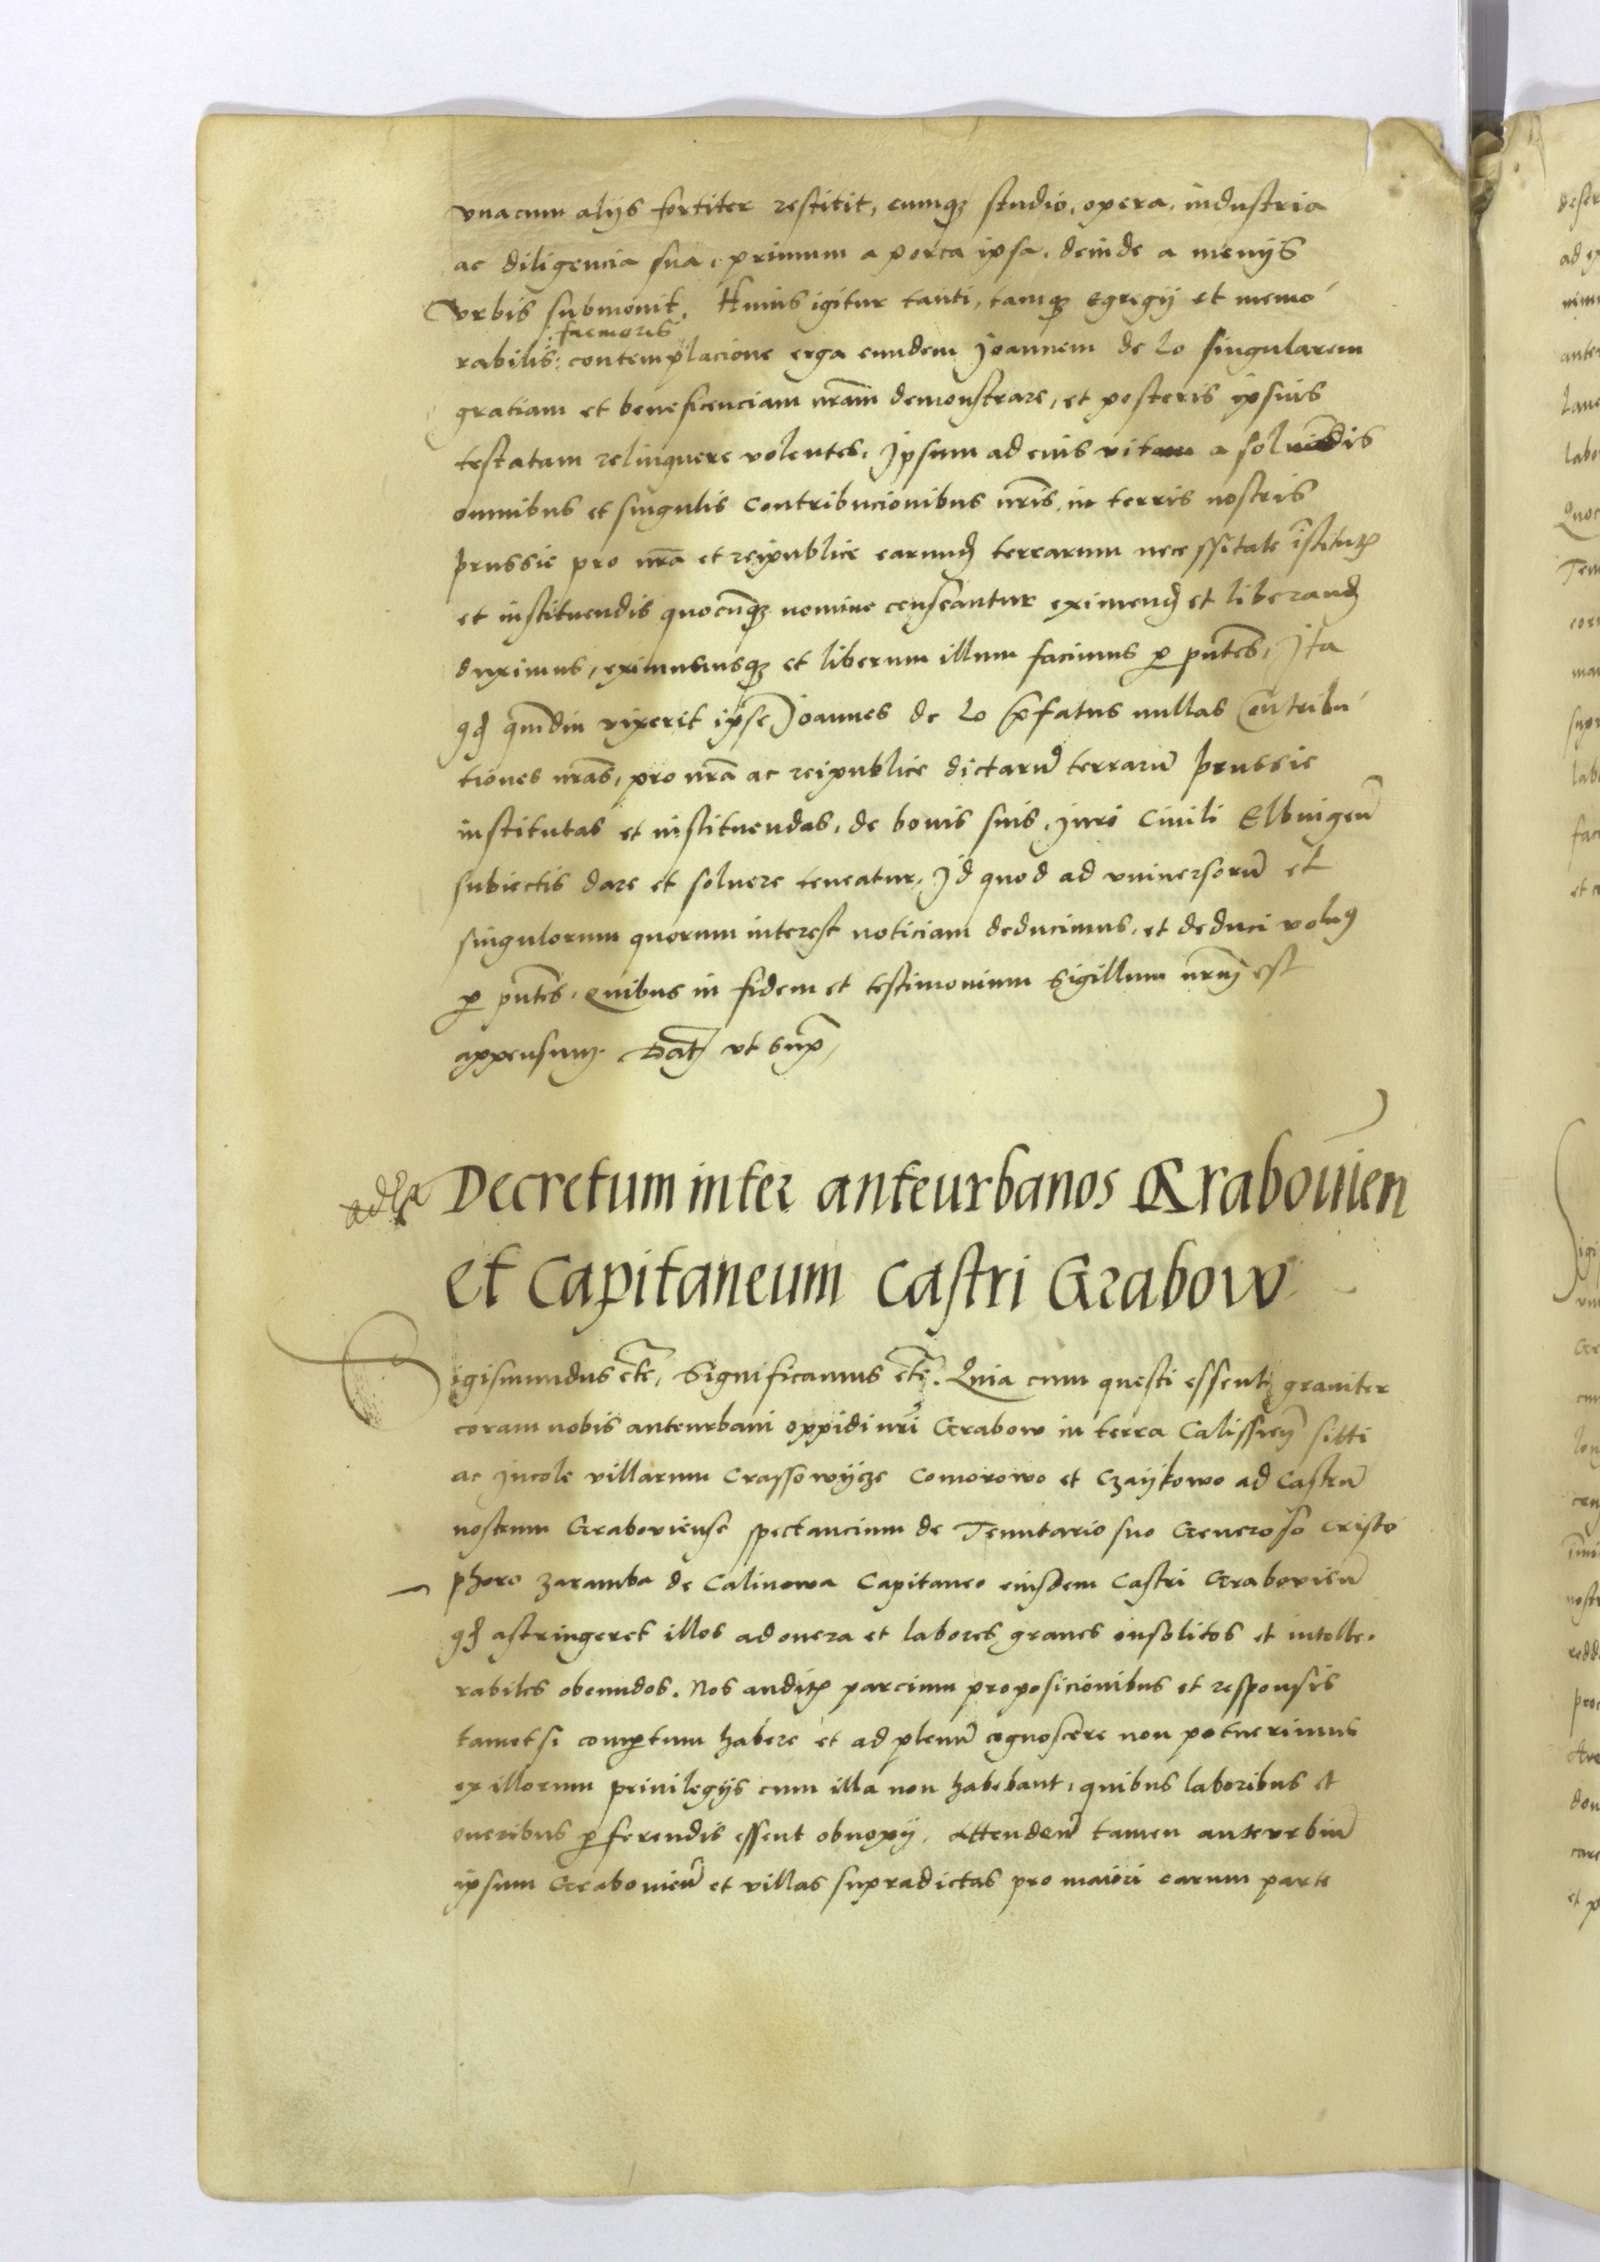 vnacum alijs fortiter restitit, eumqꝫ studio, opera, industria
ac diligencia sua, primum a porta ipsa, deinde a menijs
vrbis submouit. Huius igitur tanti, tamqꝫ egregij et memo
facinoris
rabilis contemplacione erga eundem Joannem de Lo singularem
gratiam et beneficenciam nrãm demonstrare, et posteris ipsius
testatam relinquere volentes, Ipsum ad eius vitam a soluendis
omnibus et singulis contribucionibus nrĩs, in terris nostris
Prussie pro nrã et reipublice earund terrarum necessitate ĩstitutꝭ
et instituendis quocũqꝫ nomine censeantur eximend et liberand
duximus, eximimusqꝫ et liberum illum facimus ꝑ pñtes, Ita
qd qmdiu vixerit ipse Joannes de Lo p̃fatus nullas Contribu
tiones nrãs, pro nrã ac reipublice dictarũ terrarũ Prussie
institutas et instituendas, de bonis suis, iuri Ciuili Elbingeñ
subiectis dare et soluere teneatur, Id quod ad vniuersorũ et
singulorum quorum interest noticiam deducimus, et deduci volum9
ꝑ pñtes, Quibus in fidem et testimonium Sigillum nrũm est
appensum. Dat vt supra,
Decretum inter anteurbanos Grabouien
et Capitaneum Castri Grabow
Sigismundus etc, Significamus etc. Quia cum questi essent grauiter
coram nobis anteurbani oppidi nrĩ Grabow in terra Calissień sitti
ac Incole villarum Crassowijcze Comorowo et Czaijkowo ad Castrũ
nostrum Grabouiense spectancium de Tenutario suo Generoso Cristo
phoro Zaramba de Calinowa Capitaneo eiusdem Castri Grabouień
qd astringeret illos ad onera et labores graues insolitos et intolle
rabiles obeundos. Nos auditꝭ parcium proposicionibus et responsis
tametsi compertum habere et ad plenũ cognoscere non potuerimus
ex illorum priuilegijs cum illa non habebant, quibus laboribus et
oneribus ꝑferendis essent obnoxij. Attendeñ tamen anteurbiũ
ipsum Grabouień et villas supradictas pro maiori earum parte